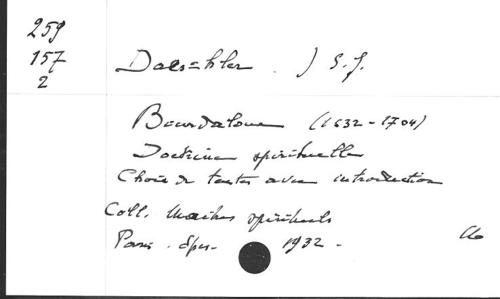 259
157
2
Daeschler . ) S.J.
Bourdaloue (1632-1704)
Doctrine spirituelle
Choix de textes avec introduction
Coll. Maîtres spirituels
Paris . Spes - 1932 -